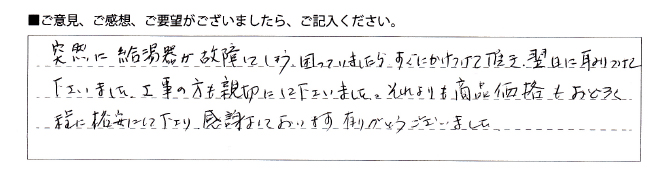 ■ご意見、ご感想、ご要望がございましたら、ご記入ください。
突然に給湯器が故障してしまう、困っていましたらすぐにかけつけて頂き、翌日に取りつけて
下さいました。工事の方も親切にして下さいました。それよりも商品価格もおどろく
程に格安にして下さり感謝をしております有りがとうございました